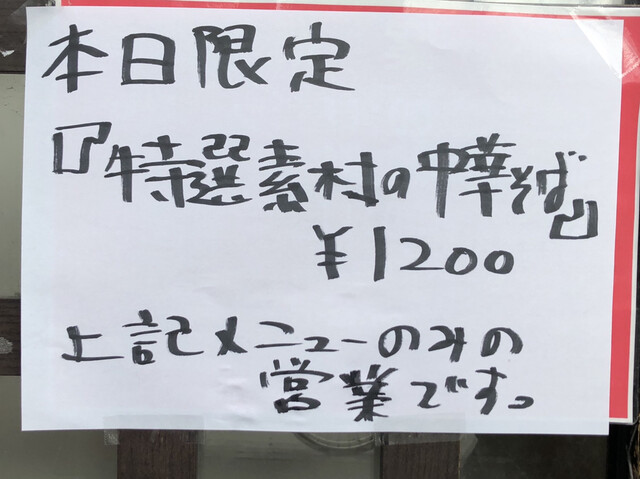 本日限定
『特選素材の中華そば』
¥1200
上記メニューのみの
営業です。